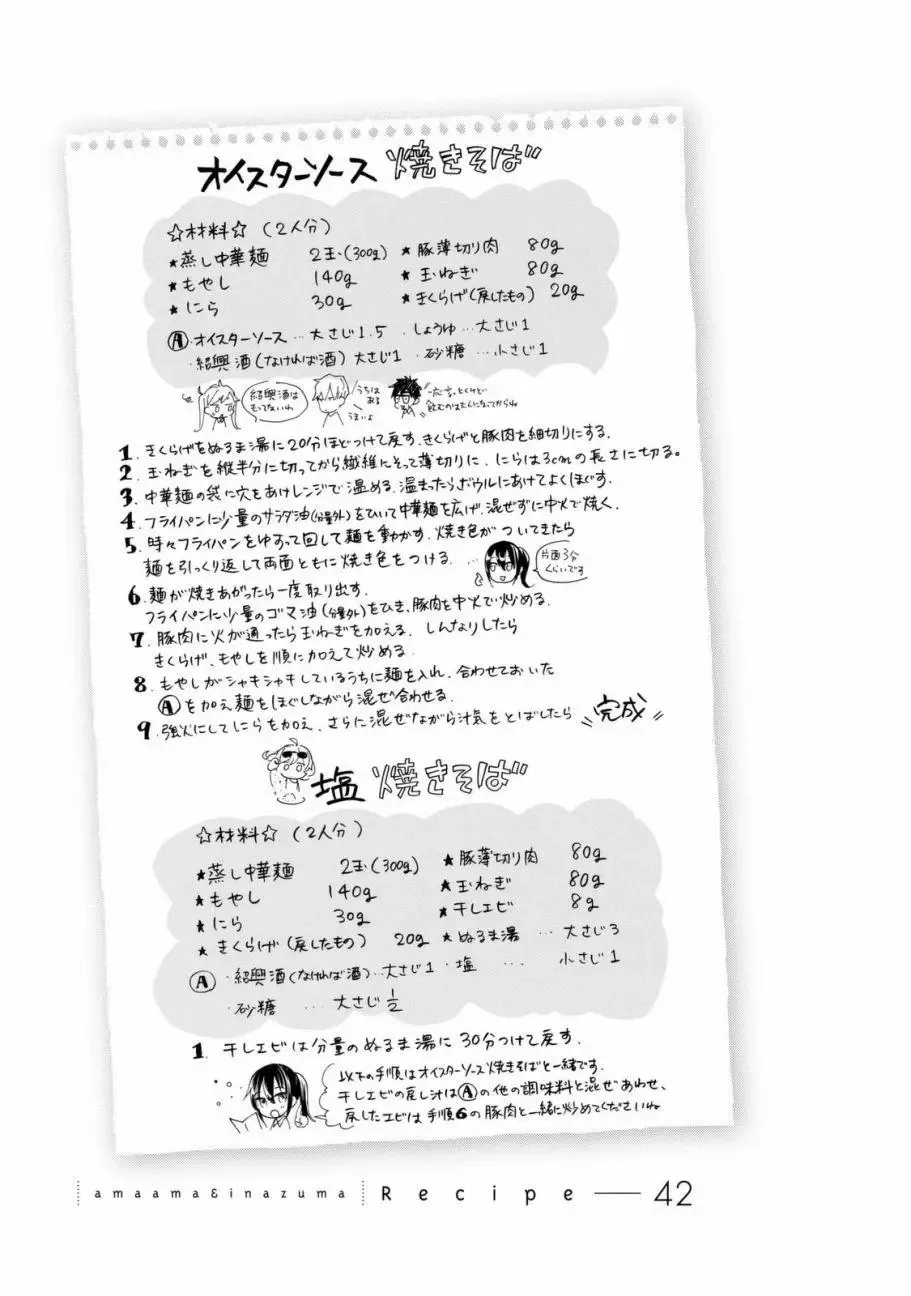 オイスターソース 焼きそば
☆材料☆ (2人分)
★蒸し中華麺 2玉(300g) ★豚薄切り肉 80g
★もやし 140g ★玉ねぎ 80g
★にら 30g ★きくらげ(戻したもの) 20g
Ⓐ・オイスターソース…大さじ1.5 ・しょうゆ…大さじ1
・紹興酒(なければ酒) 大さじ1 ・砂糖 …小さじ1
紹興酒は
もってないわ
うちは
ある
うまいよ
一応言っとくけど
飲むのは大人になってからね
1. きくらげをぬるま湯に20分ほどつけて戻す。きくらげと豚肉を細切りにする。
2. 玉ねぎを縦半分に切ってから繊維にそって薄切りに、にらは3cmの長さに切る。
3. 中華麺の袋に穴をあけレンジで温める。温まったらボウルにあけてよくほぐす。
4. フライパンに少量のサラダ油(分量外)をひいて中華麺を広げ、混ぜずに中火で焼く。
5. 時々フライパンをゆすって回して麺を動かす。焼き色がついてきたら
麺を引っくり返して両面ともに焼き色をつける。
…片面3分
くらいです
6. 麺が焼きあがったら一度取り出す。
フライパンに少量のゴマ油(分量外)をひき、豚肉を中火で炒める。
7. 豚肉に火が通ったら玉ねぎを加える。しんなりしたら
きくらげ、もやしを順に加えて炒める。
8. もやしがシャキシャキしているうちに麺を入れ、合わせておいた
Ⓐを加え麺をほぐしながら混ぜ合わせる。
9. 強火にしてにらを加え、さらに混ぜながら汁気をとばしたら 完成
塩 焼きそば
☆材料☆ (2人分)
★蒸し中華麺 2玉(300g) ★豚薄切り肉 80g
★もやし 140g ★玉ねぎ 80g
★にら 30g ★干しエビ 8g
★きくらげ(戻したもの) 20g ★ぬるま湯 …大さじ3
Ⓐ ・紹興酒(なければ酒)…大さじ1 ・塩 … 小さじ1
・砂糖 …大さじ1/2
1. 干しエビは分量のぬるま湯に30分つけて戻す。
以下の手順はオイスターソース焼きそばと一緒です。
干しエビの戻し汁はⒶの他の調味料と混ぜあわせ、
戻したエビは手順6の豚肉と一緒に炒めてくださいね
amaama&inazuma Recipe — 42